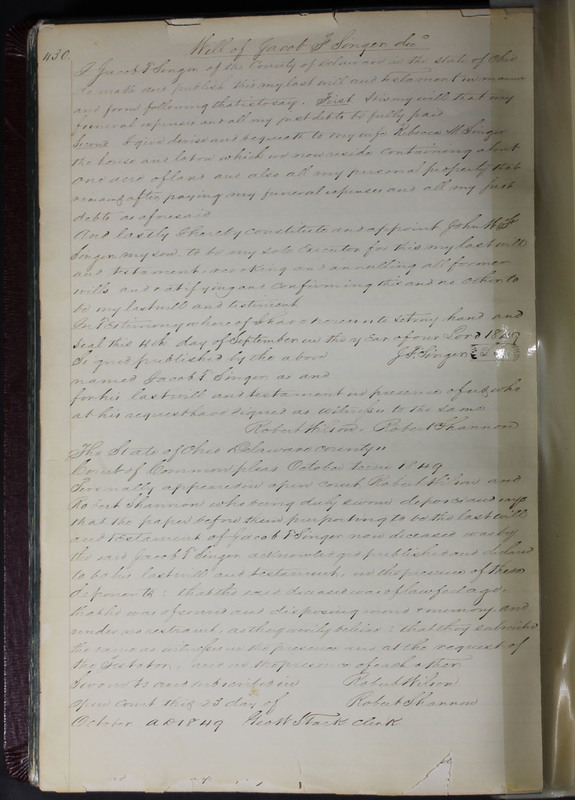 430.
Will of Jacob F Singer decd
I Jacob F Singer of the County of Delaware in the state of Ohio
do make and publish this my last will and testament in manner
and form following that is to say. First It is my will that my
funeral expenses and all my just debts be fully paid
Second I give devise and bequeath to my wife Rebecca M Singer
the house and lot on which we now reside containing about
one acre of land and also all my personal property that
remains after paying my funeral expenses and all my just
debts as aforesaid
And lastly I hereby constitute and appoint John W F
Singer my son to be my sole Executor for this my last will
and testament, revoking and annulling all former
wills and ratifying and confirming this and no other to
be my last will and testament
In Testimony whereof I have hereunto set my hand and
seal this 14th day of September in the year of our Lord 1849
Signed published by the above J. F. Singer
named Jacob F Singer as and
for his last will and testament in presence of us who
at his request have signed as witnesses to the same
Robert Wilson. Robert Shannon
The State of Ohio Delaware County "
Court of Common pleas October term 1849
Personally appeared in open court Robert Wilson and
Robert Shannon who being duly sworn depose and says
that the paper before them purporting to be the last will
and testament of Jacob F Singer now deceased was by
the said Jacob F Singer acknowledged published and declared
to be his last will and testament, in the presence of these
deponents: that the said deceased was of lawful age,
that he was of sound and disposing mind & memory, and
under no restraint, as they verily believe: that they subscribed
the same as witnesses in the presence and at the request of
the Testator, and in the presence of each other
Sworn to and subscribed in Robert Wilson
open court this 23 day of Robert Shannon
October A D 1849 Geo W Stark Clerk